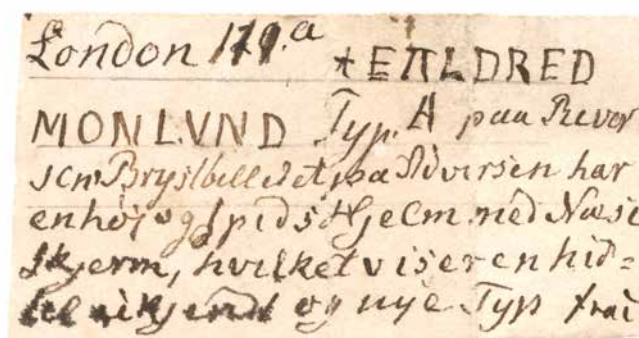 London 171.a +EΠLDRED
MONLVND Typ. A paa Rever
sen Brystbilledet paa Adversen har
en høj og spids Hjelm med Næse
skjerm, hvilket viser en hid=
til ukjendt og nye Typ fra